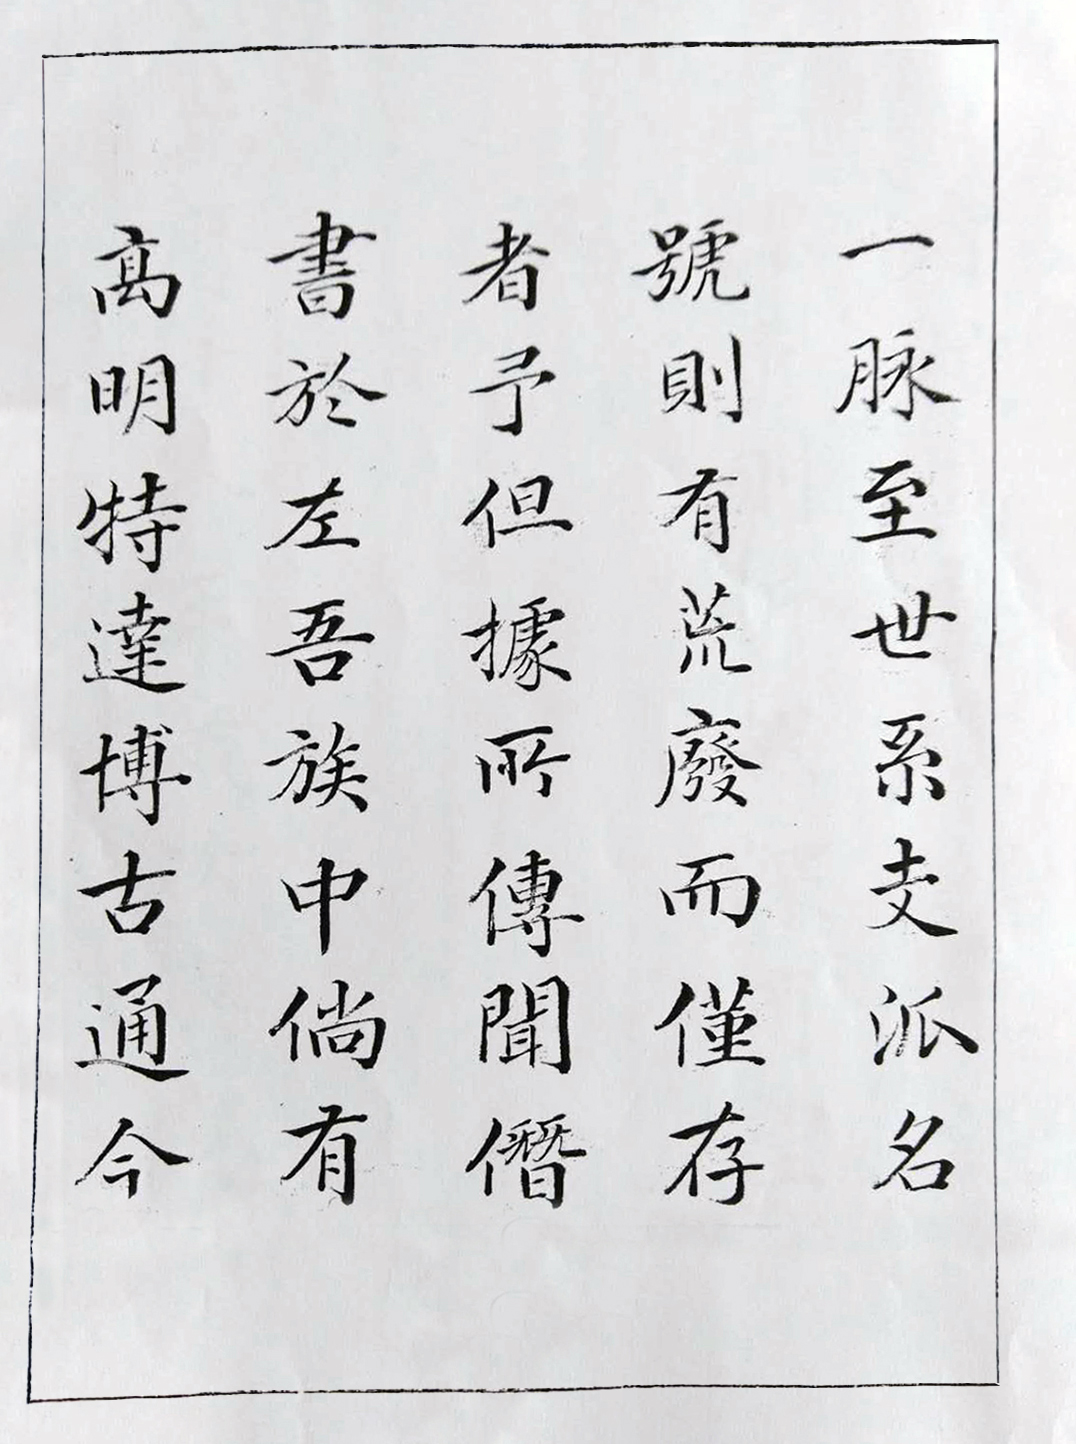 一脉至世系支派名
號則有荒廢而僅存
者予但據所傳聞僭
書於左吾族中倘有
高明特達博古通今